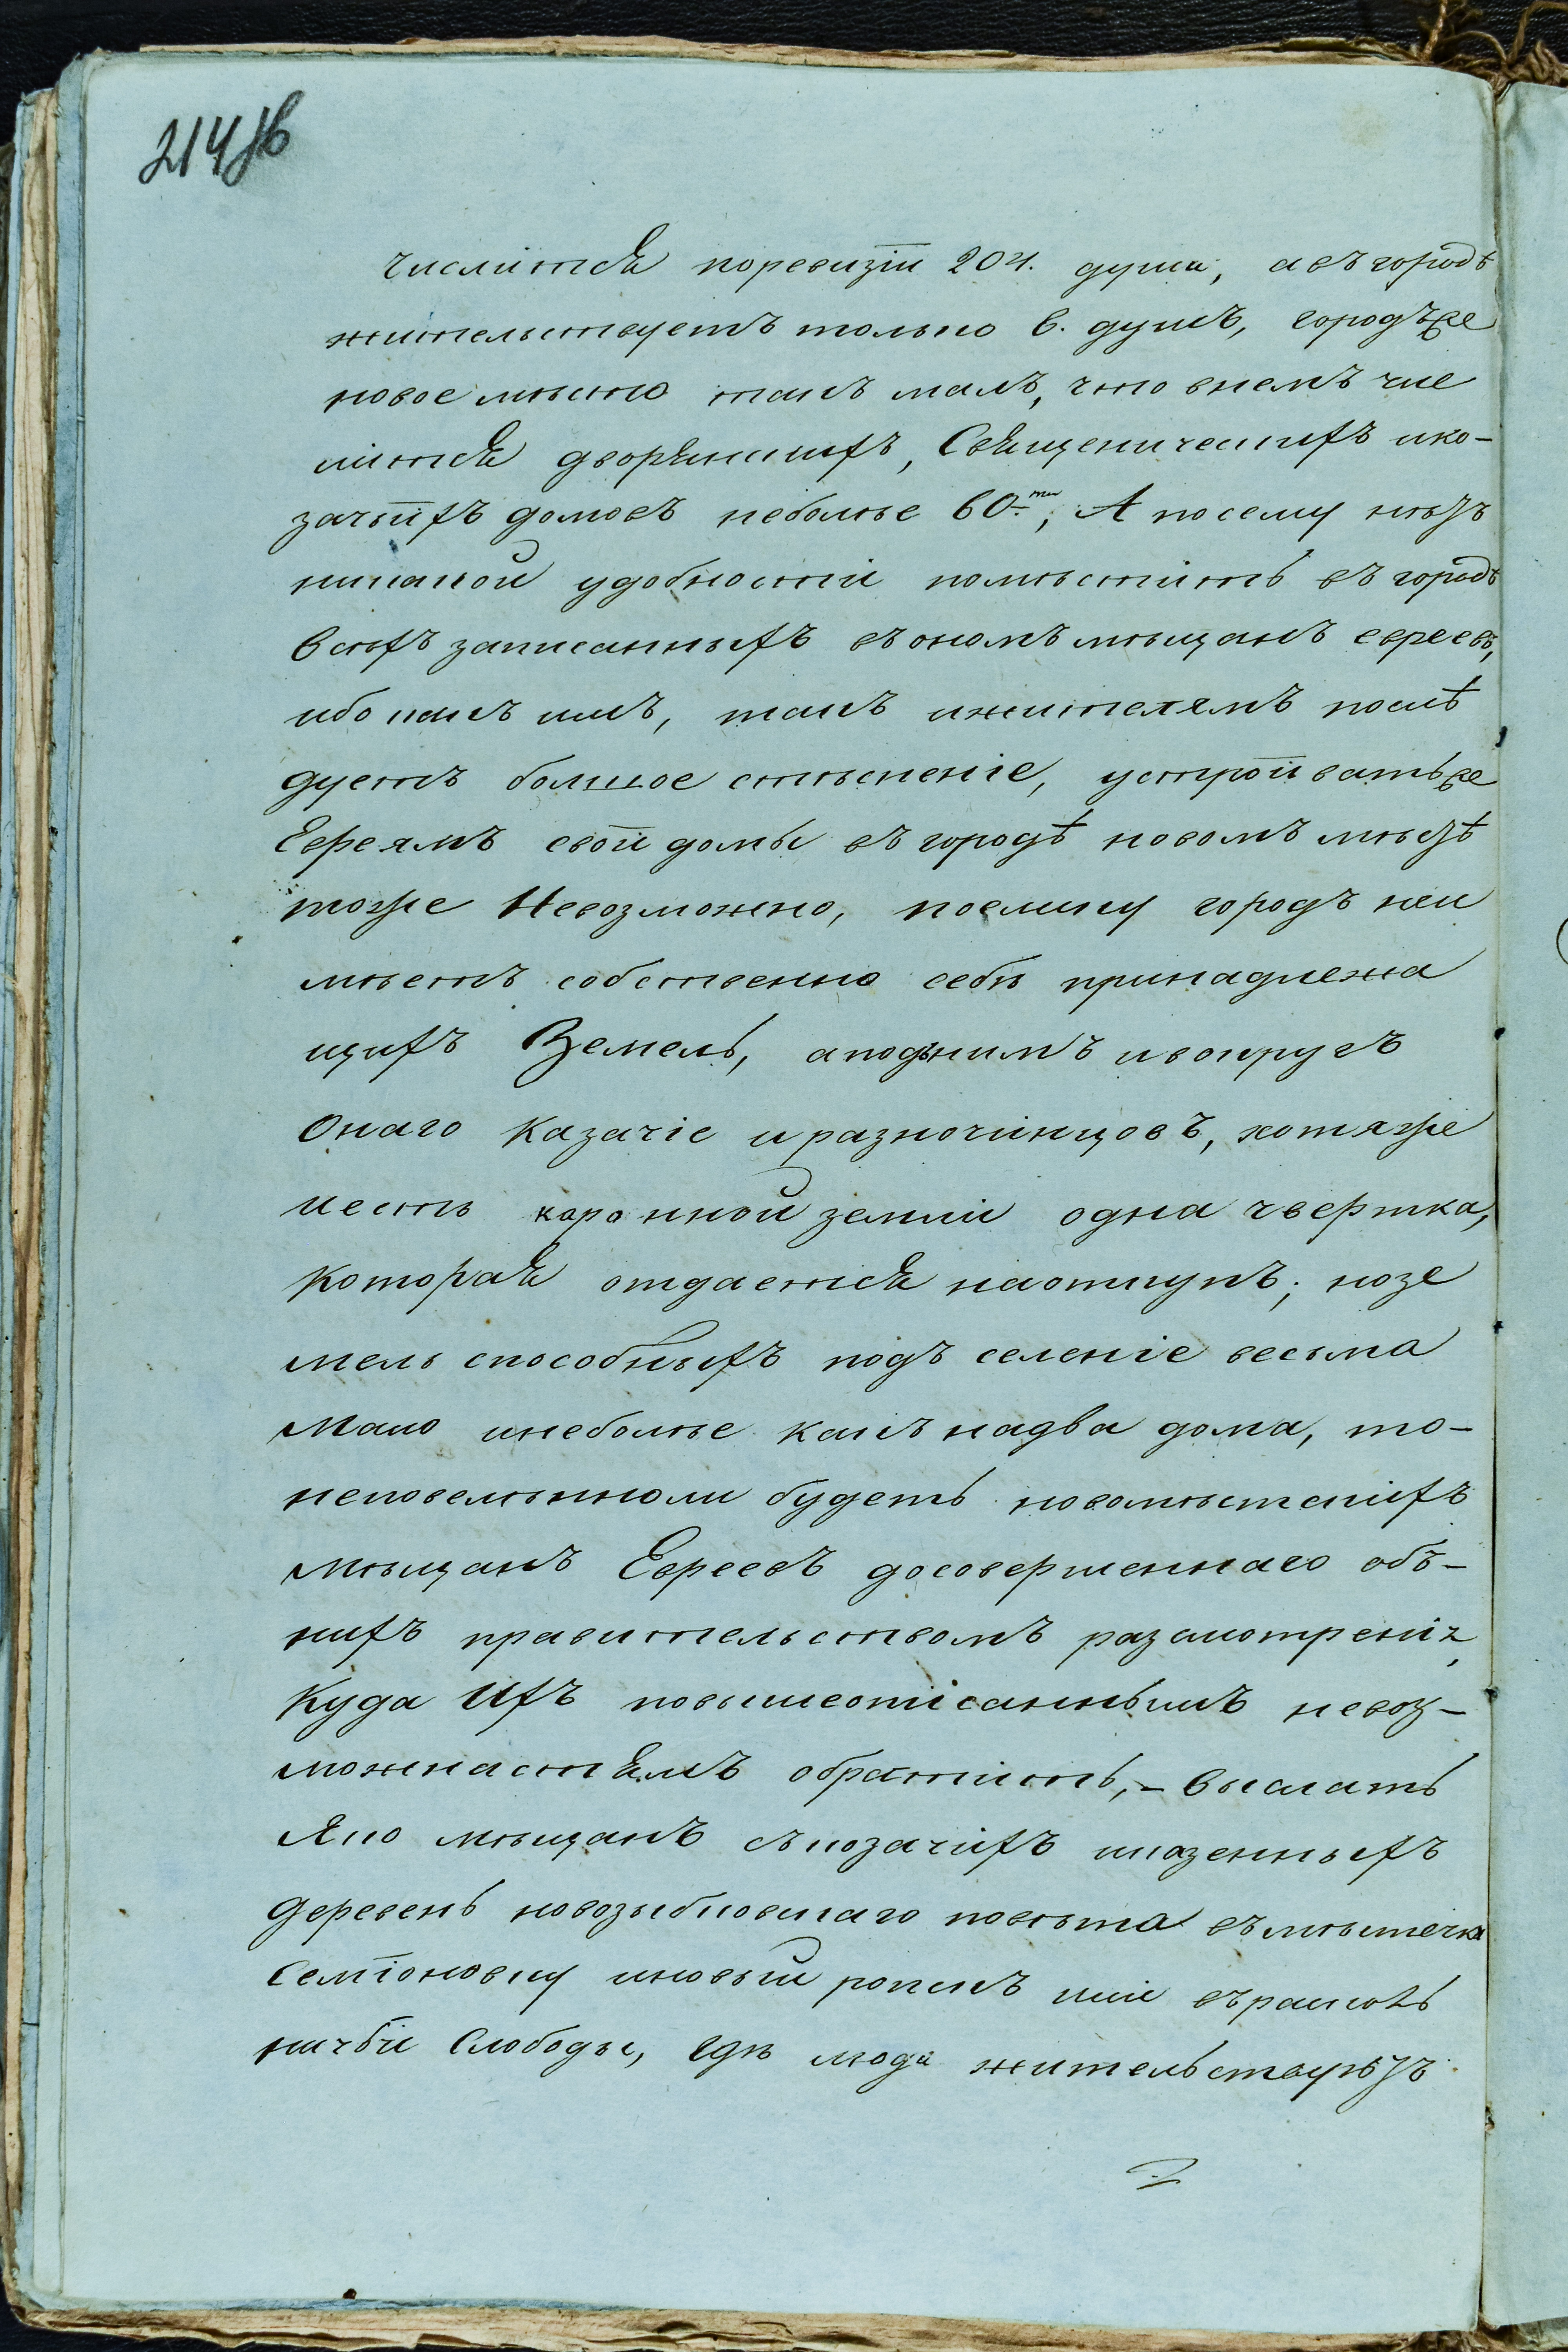 214 об
числится поревизіи 204. души, авъ городѣ
жительствуетъ только 6. душъ, городъже
новое мѣсто такъ малъ, что внемъ чис
лится дворянскихъ, Священическихъ ико-
зачьихъ домовъ неболѣе 60-ти; А посему нѣтъ
никакой удобности помѣстить въ городѣ
всѣхъ записанныхъ въ ономъ мѣщанъ евреевъ,
ибо какъ имъ, такъ ижителямъ послѣ
дуетъ большое стѣсненіе, устроивать же
Евреямъ свои домы въ городѣ новомъ мѣстѣ
тоже Невозможно, поелику городъ неи
мѣетъ собственно себѣ принадлежа
щихъ Земель, аподънимъ ивокругъ
Онаго Казачіе и разночинцовъ, хотяже
иесть каронной земли одна чвертка,
Которая отдается наоткупъ; нозе
мель способныхъ подъ селеніе весьма
Мало инеболѣе какъ надва дома, то-
неповелѣнноли будетъ новомѣстскихъ
Мѣщанъ Евреевъ досовершеннаго объ-
нихъ правительствомъ разсмотренія,
Куда Ихъ повышеописаннымъ невоз-
можнастямъ обратить, - выслать
яко мѣщанъ съкозачихъ иказенныхъ
Деревень новозыбковскаго повѣта въ мѣстечка
Семіоновку иновый ропскъ или враскол
ничьи Слободы, гдѣ люди жительствуютъ